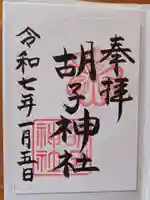 奉拝
胡子神社
令和七年一月五日